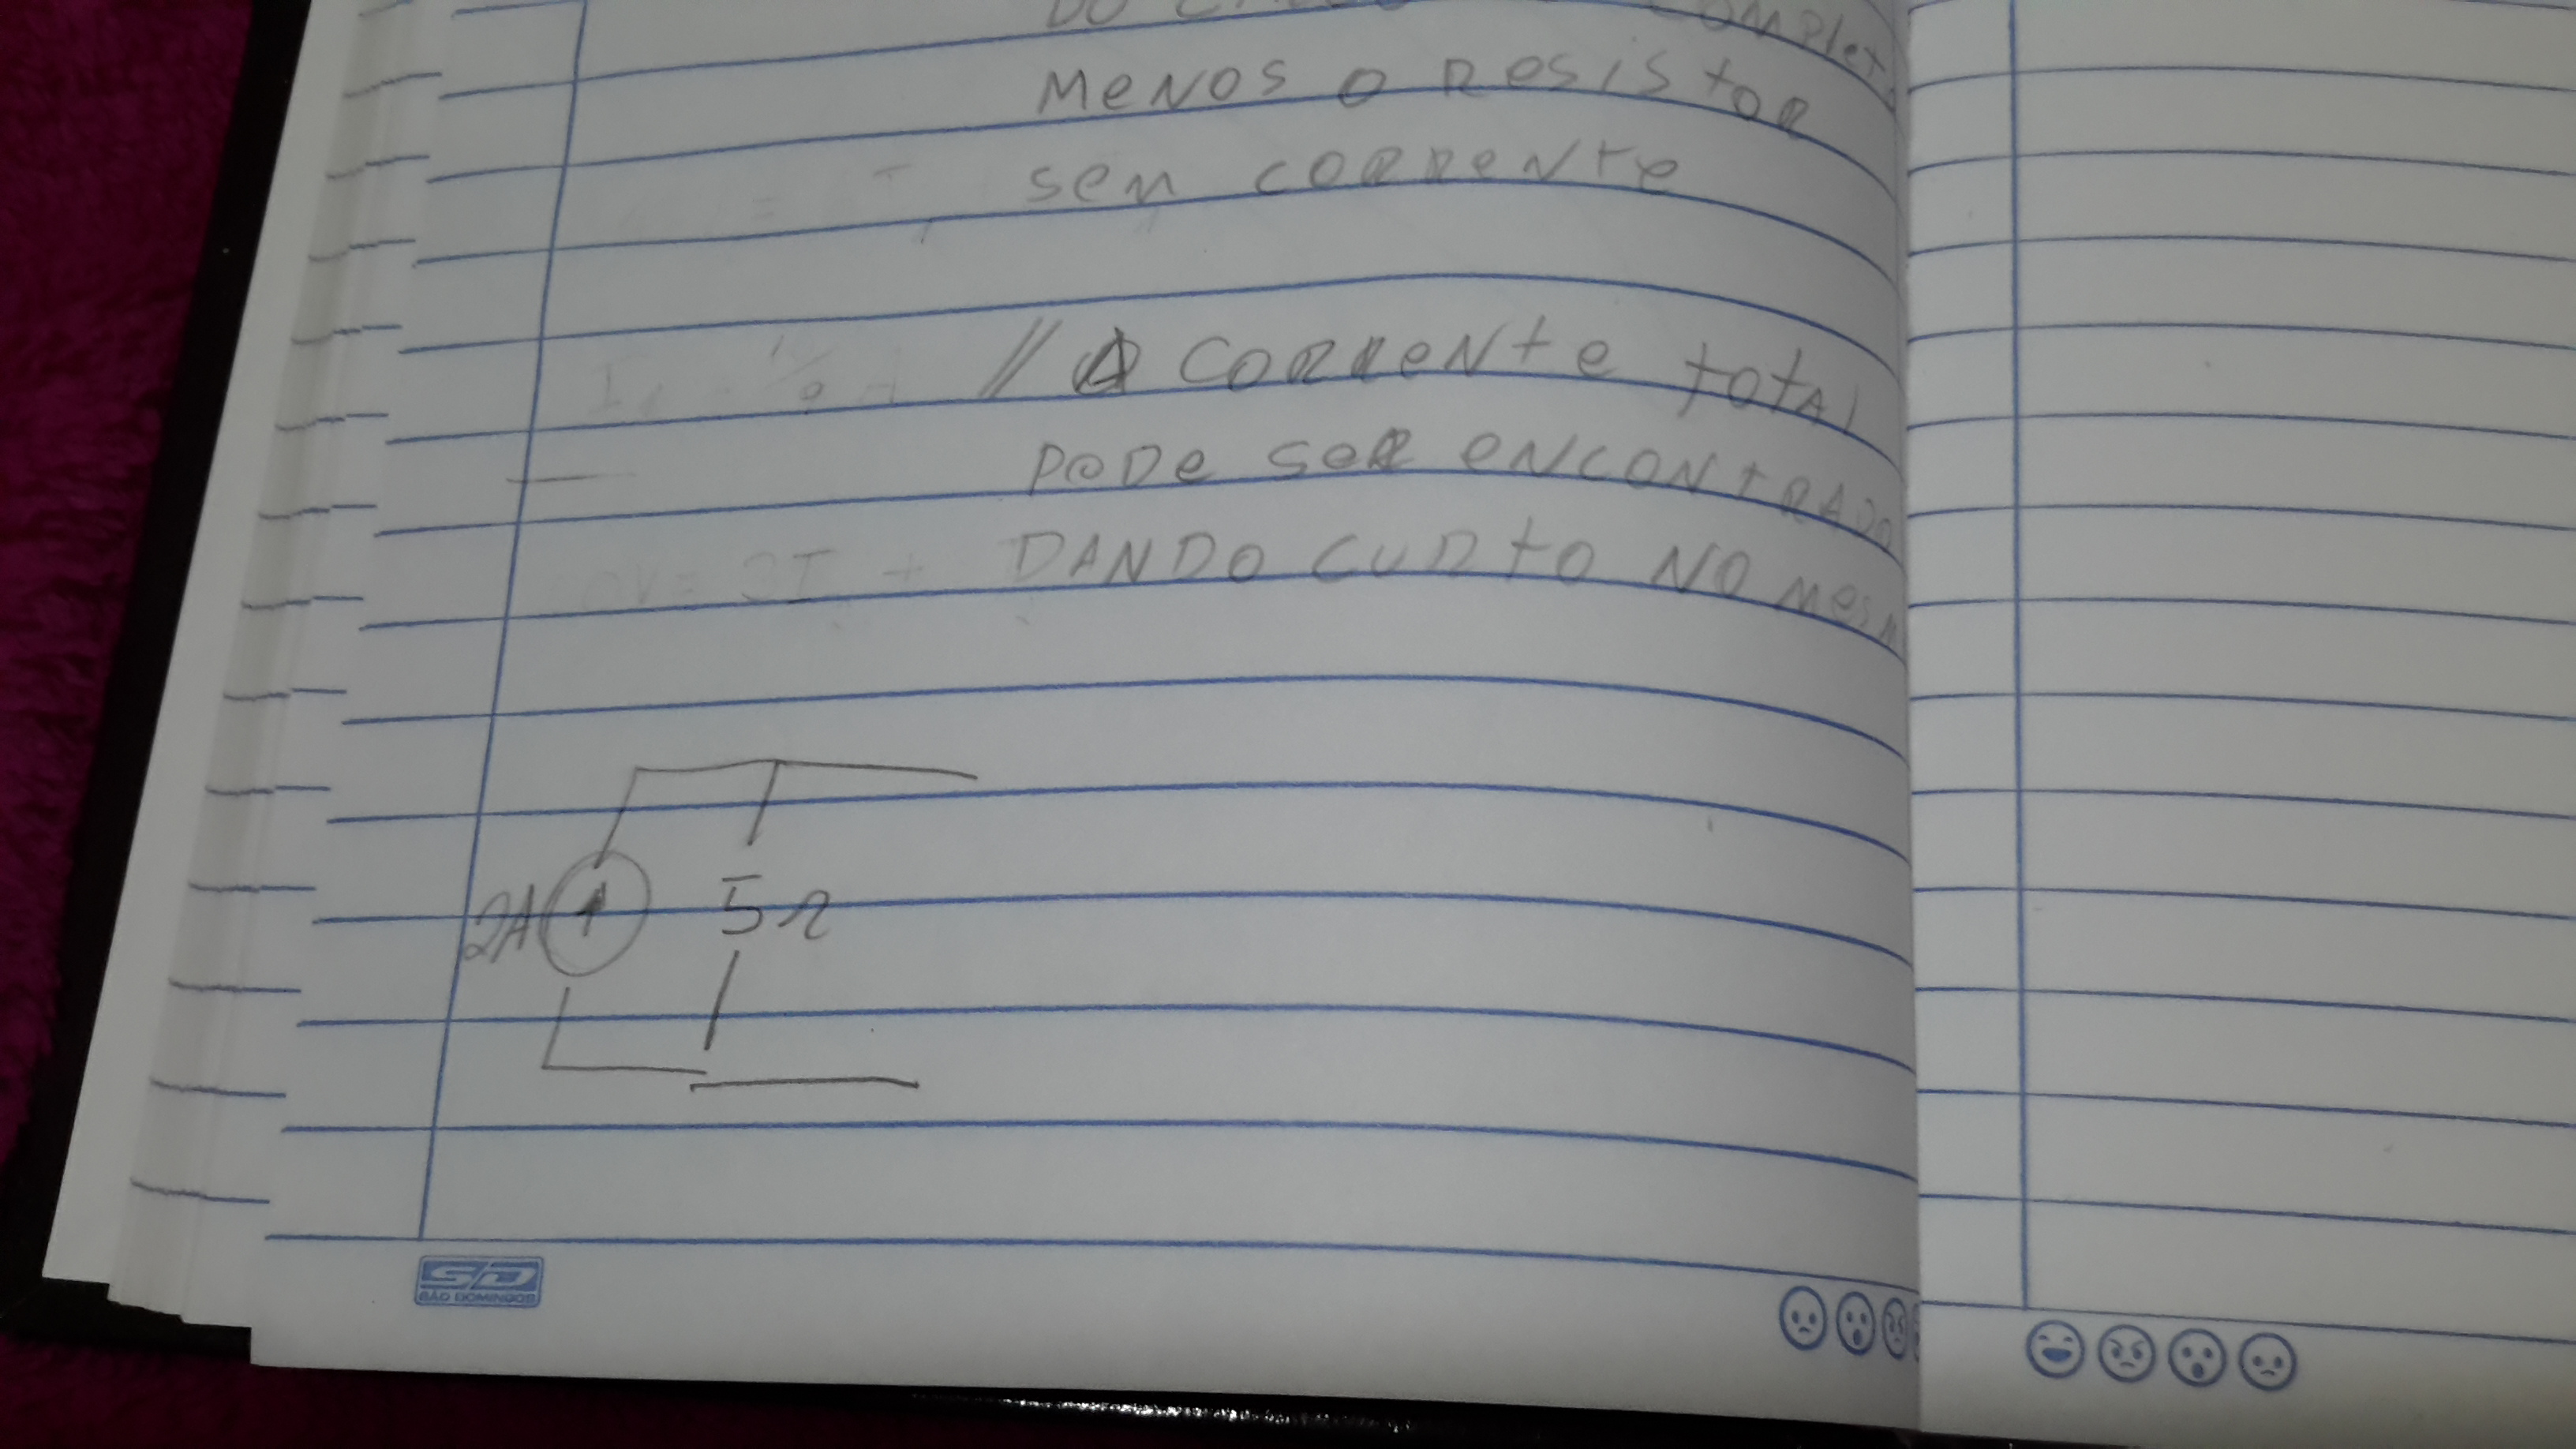 DO
MENOS O RESISTOR
SEM CORRENTE
// A CORRENTE TOTAL
PODE SER ENCONTRADO
DANDO CURTO NO MESM
2A
5Ω
SD
SÃO DOMINGOS